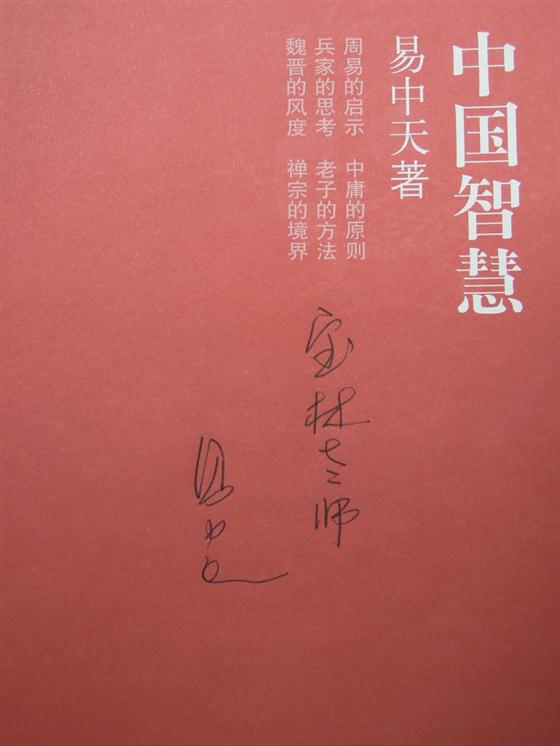 中国智慧
易中天著
周易的启示 中庸的原则
兵家的思考 老子的方法
魏晋的风度 禅宗的境界
宝林老师
易中天